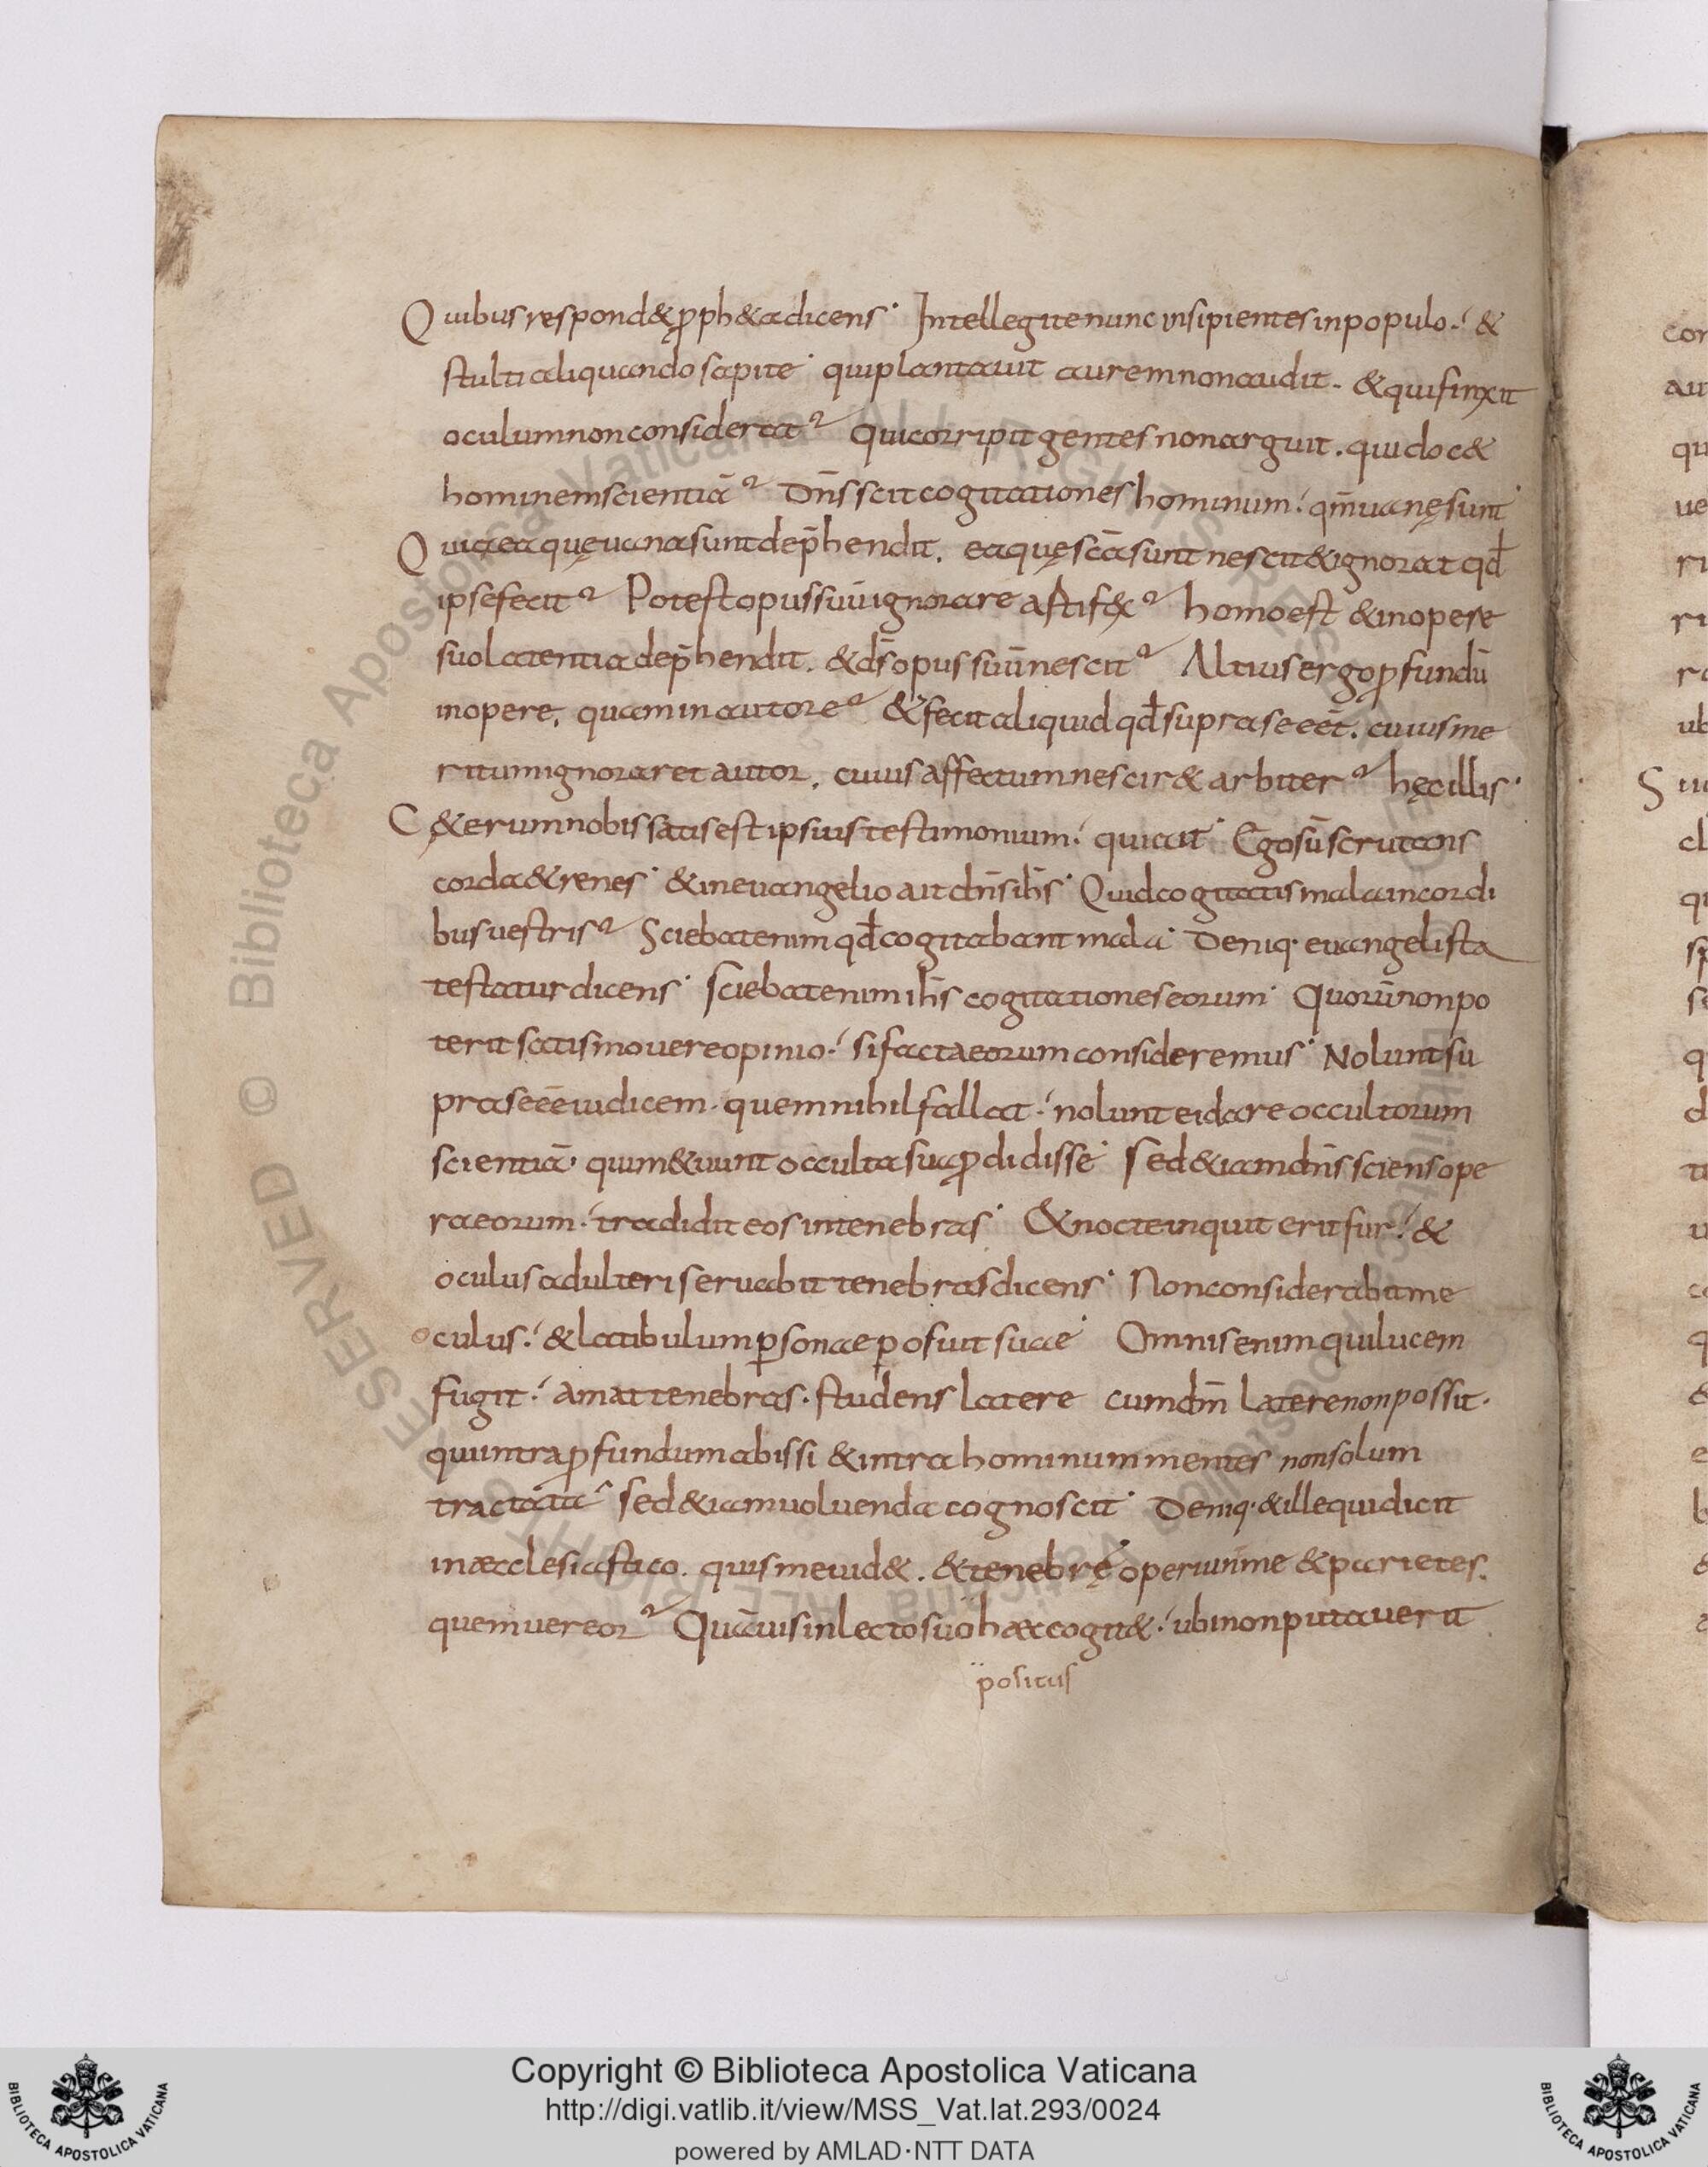 Quibus respond& ꝓph&a dicens· Intellegite nunc insipientes in populo·/ &
stulti aliquando sapite· qui plantauit aurem non audit. & qui finxit
oculum non considerat? Qui corripit gentes non arguit. qui doc&
hominem scientiā? Dn̄s scit cogitationes hominum·/ qm̄ uanę sunt·
Quia ea quę uana sunt dep̄hendit. ea quę sc̄a sunt nescit & ignorat qđ
ipse fecit? Potest opus suū ignorare artif&x? homo est & in opere
suo latentia dep̄hendit. & d̄s opus suū nescit? Altius ergo ꝓfundū
in opere. quam in autore? & fecit aliquid qđ supra se eēt. cuius me
ritum ignoraret autor. cuius affectum nescir& arbiter? hęc illis·
C&erum nobis satis est ipsius testimonium·/ qui ait· Ego sū scrutans
corda & renes· & in euangelio ait dn̄s ih̄s· Quid cogitatis mala in cordi
bus uestris? Sciebat enim qđ cogitabant mala· Deniq· euangelista
testatur dicens· sciebat enim ih̄s cogitationes eorum· Quorū non po
terit satis mouere opinio·/ si facta eorum consideremus· Nolunt su
pra se eē iudicem· quem nihil fallat·/ nolunt ei dare occultorum
scientiā· qui m&uunt occulta sua ꝓdidisse· Sed &iam dn̄s sciens ope
ra eorum·/ tradidit eos in tenebras· & nocte inquit erit fur·/ &
oculus adulteri seruabit tenebras dicens· Non considerabit me
oculus·/ & latibulum ꝑsonae posuit suae· Omnis enim qui lucem
fugit·/ amat tenebras· studens latere cum dm̄ latere non possit·
qui intra ꝓfundum abissi & intra hominum mentes non solum
tractata· sed &iam uoluenda cognoscit· Deniq· & ille qui dicit
in aecclesiastico. quis me uid&. & tenebrę operiunt me & parietes.
quem uereor? Quāuis in lecto suo haec cogit&·/ ubi non putauerit
positus